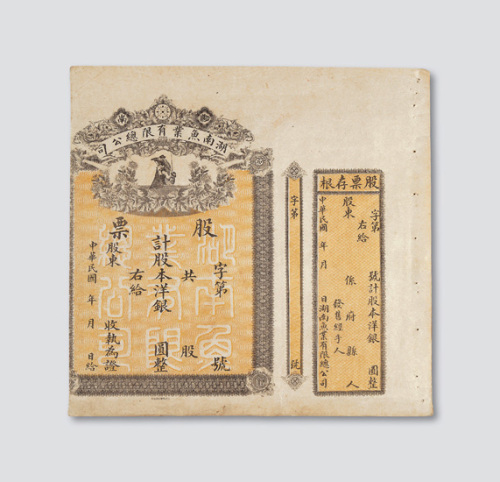 湖南魚業有限總公司
股票
字第 號
共 股
計股本洋銀 圓整
右給
股東 收執為證
中華民國 年 月 日給
湖南魚
業有限
總公司
字第 號
股票存根
字第 號計股本洋銀 圓整
右給
股東 係 府 縣 人
發售經手人
中華民國 年 月 日湖南魚業有限總公司